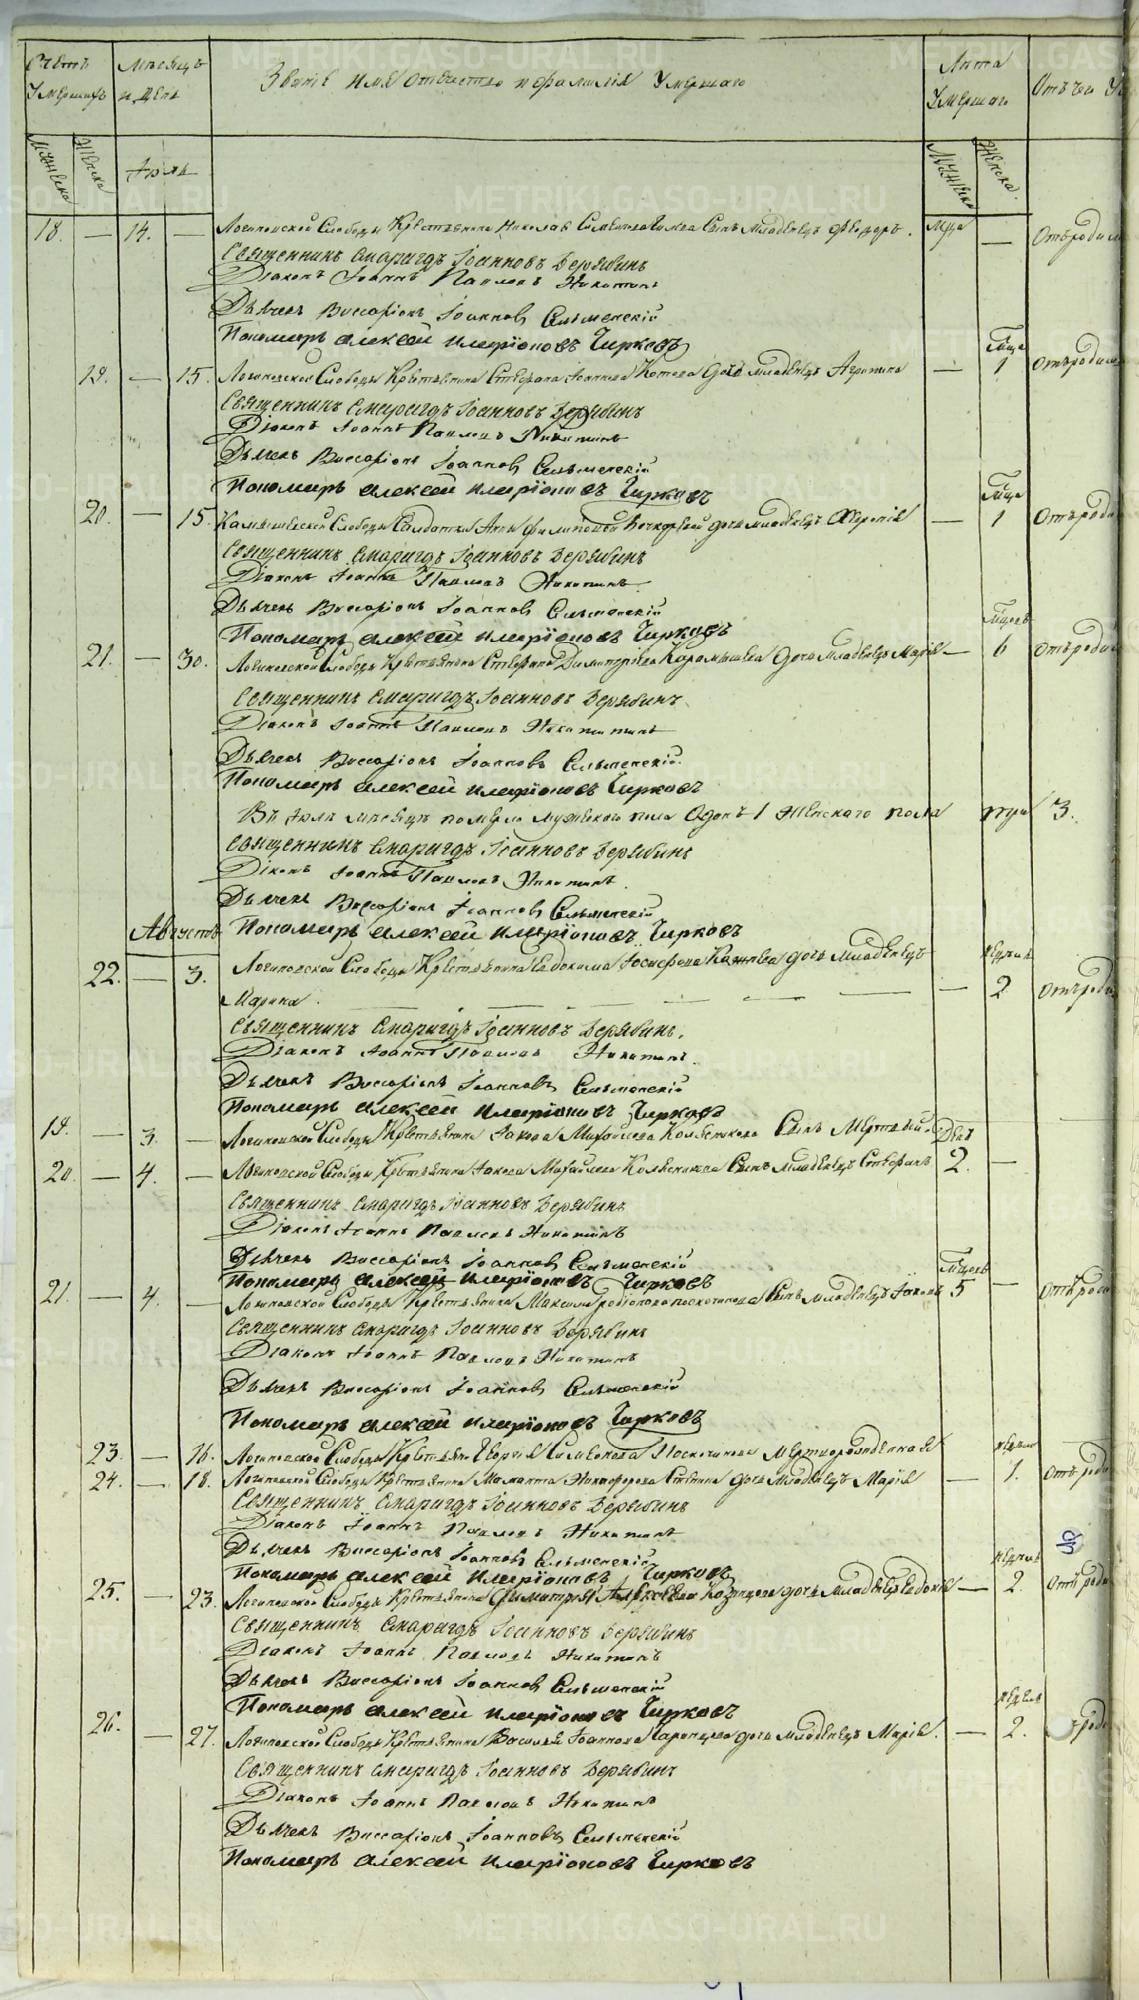 Счетъ Умершихъ
Мѣсяцъ и День
Званіе имя отчество и фамилія Умершаго
Лѣта Умершаго
Отъ чего
Мужеска
Женска
Іюль
Мужеска
Женска
18. — 14. — Логиновской Слободы Крестьянина Николая Сынъ Младенецъ Феодоръ. —
Священникъ Смарагдъ Іоанновъ Дерябинъ
Діаконъ Іоаннъ Павловъ Никитинъ
Дьячекъ Виссаріонъ Іоанновъ Сельменскій
Пономарь Алексей Иларіоновъ Чирковъ
19. — 15. Логиновской Слободы Крестьянина Стефана Іоаннова Котова дочь младенецъ Агрипина — 1
Священникъ Смарагдъ Іоанновъ Дерябинъ
Діаконъ Іоаннъ Павловъ Никитинъ
Дьячекъ Виссаріонъ Іоанновъ Сельменскій
Пономарь Алексей Иларіоновъ Чирковъ
20. — 15. Камышевской Слободы Солдатки Анны Филиповой дочь младенецъ — 1
Священникъ Смарагдъ Іоанновъ Дерябинъ
Діаконъ Іоаннъ Павловъ Никитинъ
Дьячекъ Виссаріонъ Іоанновъ Сельменскій
Пономарь Алексей Иларіоновъ Чирковъ
21. — 30. Логиновской Слободы Крестьянина Стефана Димитріева Карамышева дочь младенецъ Марія — 6
Священникъ Смарагдъ Іоанновъ Дерябинъ
Діаконъ Іоаннъ Павловъ Никитинъ
Дьячекъ Виссаріонъ Іоанновъ Сельменскій
Пономарь Алексей Иларіоновъ Чирковъ
Въ Іюлѣ мѣсяцѣ померло мужескаго пола Одинъ 1 Женскаго пола три 3.
Священникъ Смарагдъ Іоанновъ Дерябинъ
Діаконъ Іоаннъ Павловъ Никитинъ
Дьячекъ Виссаріонъ Іоанновъ Сельменскій
Августъ
Пономарь Алексей Иларіоновъ Чирковъ
22. — 3. Логиновской Слободы Крестьянина Евдокима Іосифова дочь младенецъ
Марина. — 2
Священникъ Смарагдъ Іоанновъ Дерябинъ.
Діаконъ Іоаннъ Павловъ Никитинъ
Дьячекъ Виссаріонъ Іоанновъ Сельменскій
Пономарь Алексей Иларіоновъ Чирковъ
19. — 3. — Логиновской Слободы Крестьянина Іакова Михайлова Колесникова Сынъ Мертвый
20. — 4. — Логиновской Слободы Крестьянина Іакова Михайлова Колесникова Сынъ младенецъ Стефанъ 2. —
Священникъ Смарагдъ Іоанновъ Дерябинъ
Діаконъ Іоаннъ Павловъ Никитинъ
Дьячекъ Виссаріонъ Іоанновъ Сельменскій
Пономарь Алексей Иларіоновъ Чирковъ
21. — 4. — Логиновской Слободы Крестьянина Максима Родіонова Поскотинова Сынъ младенецъ 5 —
Священникъ Смарагдъ Іоанновъ Дерябинъ
Діаконъ Іоаннъ Павловъ Никитинъ
Дьячекъ Виссаріонъ Іоанновъ Сельменскій
Пономарь Алексей Иларіоновъ Чирковъ
23. — 16. Логиновской Слободы Георгія Симеонова Поскотинова Мертворожденная
24. — 18. Логиновской Слободы Крестьянина Маманта Никифорова дочь младенецъ Марія — 1.
Священникъ Смарагдъ Іоанновъ Дерябинъ
Діаконъ Іоаннъ Павловъ Никитинъ
Дьячекъ Виссаріонъ Іоанновъ Сельменскій
Пономарь Алексей Иларіоновъ Чирковъ
25. — 23. Логиновской Слободы Крестьянина Димитрія Казанцова дочь младенецъ Евдокія — 2.
Священникъ Смарагдъ Іоанновъ Дерябинъ
Діаконъ Іоаннъ Павловъ Никитинъ
Дьячекъ Виссаріонъ Іоанновъ Сельменскій
Пономарь Алексей Иларіоновъ Чирковъ
26. — 27. Логиновской Слободы Крестьянина Василья Іоаннова дочь младенецъ Марія. — 2.
Священникъ Смарагдъ Іоанновъ Дерябинъ
Діаконъ Іоаннъ Павловъ Никитинъ
Дьячекъ Виссаріонъ Іоанновъ Сельменскій
Пономарь Алексей Иларіоновъ Чирковъ
METRIKI.GASO-URAL.RU